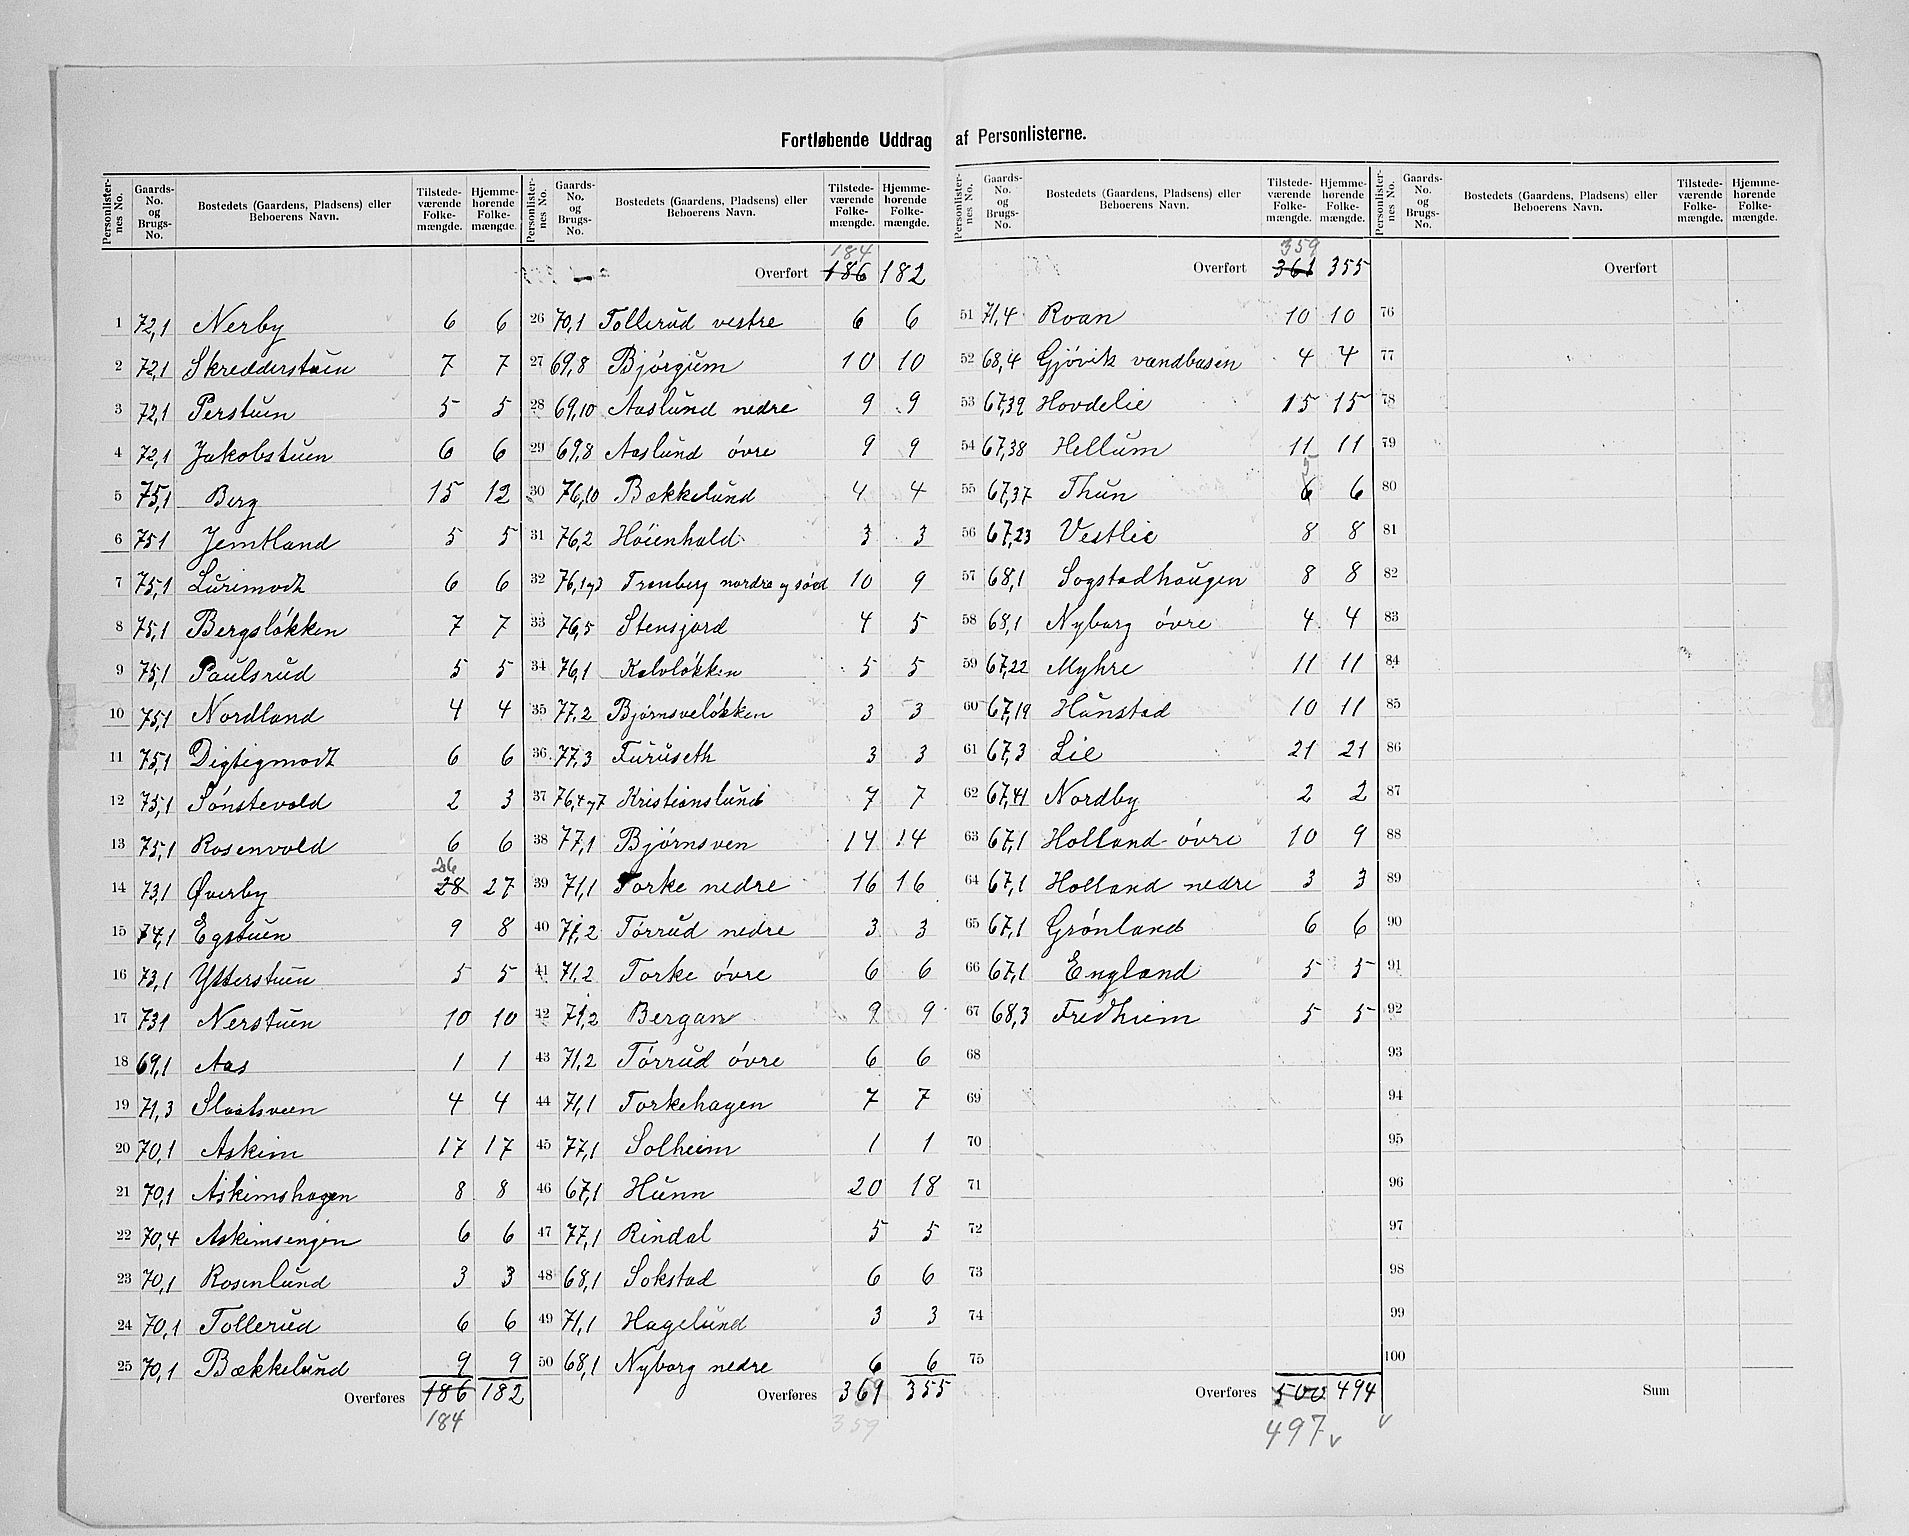 Fortløbende Uddrag af Personlisterne.
Personlister-nes No. | Gaards-No. og Brugs-No. | Bostedets (Gaardens, Pladsens) eller Beboerens Navn. | Tilstede-værende Folke-mængde. | Hjemme-hørende Folke-mængde.
1 72,1 Nerby 6 6
2 72,1 Skredderstuen 7 7
3 72,1 Perstuen 5 5
4 72,1 Jakobstuen 6 6
5 75,1 Berg 15 12
6 75,1 Jemtland 5 5
7 75,1 Lurimodt 6 6
8 75,1 Bergsløkken 7 7
9 75,1 Paulsrud 5 5
10 75,1 Nordland 4 4
11 75,1 Digtigmodt 6 6
12 75,1 Sønstevold 2 3
13 75,1 Rosenvold 6 6
14 73,1 Øverby 28 26 27
15 74,1 Egstuen 9 8
16 73,1 Ytterstuen 5 5
17 73,1 Nerstuen 10 10
18 69,1 Aas 1 1
19 71,3 Slaatsveen 4 4
20 70,1 Askim 17 17
21 70,1 Askimshagen 8 8
22 70,4 Askimsengen 6 6
23 70,1 Rosenlund 3 3
24 70,1 Tollerud 6 6
25 70,1 Bækkelund 9 9
Overføres 186 182
184
Personlister-nes No. | Gaards-No. og Brugs-No. | Bostedets (Gaardens, Pladsens) eller Beboerens Navn. | Tilstede-værende Folke-mængde. | Hjemme-hørende Folke-mængde.
184
Overført 186 182
26 70,1 Tollerud vestre 6 6
27 69,8 Bjørgum 10 10
28 69,10 Aaslund nedre 9 9
29 69,8 Aaslund øvre 9 9
30 76,10 Bækkelund 4 4
31 76,2 Høienhald 3 3
32 76,1 og 3 Tranberg nordre og sønd 10 9
33 76,5 Stensjord 4 5
34 76,1 Kalvløkken 5 5
35 77,2 Bjørnsveløkken 3 3
36 77,3 Furuseth 3 3
37 76,4 og 7 Kristianslund 7 7
38 77,1 Bjørnsven 14 14
39 71,1 Torke nedre 16 16
40 71,2 Tørrud nedre 3 3
41 71,2 Torke øvre 6 6
42 71,2 Bergan 9 9
43 71,2 Tørrud øvre 6 6
44 71,1 Torkehagen 7 7
45 77,1 Solheim 1 1
46 67,1 Hunn 20 18
47 77,1 Rindal 5 5
48 68,1 Sokstad 6 6
49 71,1 Hagelund 3 3
50 68,1 Nyborg nedre 6 6
Overføres 369 355
359
Personlister-nes No. | Gaards-No. og Brugs-No. | Bostedets (Gaardens, Pladsens) eller Beboerens Navn. | Tilstede-værende Folke-mængde. | Hjemme-hørende Folke-mængde.
359
Overført 361 355
51 71,4 Roan 10 10
52 68,4 Gjøvik vandbasen 4 4
53 67,39 Hovdelie 15 15
54 67,38 Hellum 11 11
55 67,37 Thun 6 5 6
56 67,23 Vestlie 8 8
57 68,1 Sogstadhaugen 8 8
58 68,1 Nyborg øvre 4 4
59 67,22 Myhre 11 11
60 67,19 Hunstad 10 11
61 67,3 Lie 21 21
62 67,41 Nordby 2 2
63 67,1 Holland øvre 10 9
64 67,1 Holland nedre 3 3
65 67,1 Grønland 6 6
66 67,1 England 5 5
67 68,3 Fredhiem 5 5
68
69
70
71
72
73
74
75
Overføres 500 494
497
Personlister-nes No. | Gaards-No. og Brugs-No. | Bostedets (Gaardens, Pladsens) eller Beboerens Navn. | Tilstede-værende Folke-mængde. | Hjemme-hørende Folke-mængde.
Overført
76
77
78
79
80
81
82
83
84
85
86
87
88
89
90
91
92
93
94
95
96
97
98
99
100
Sum